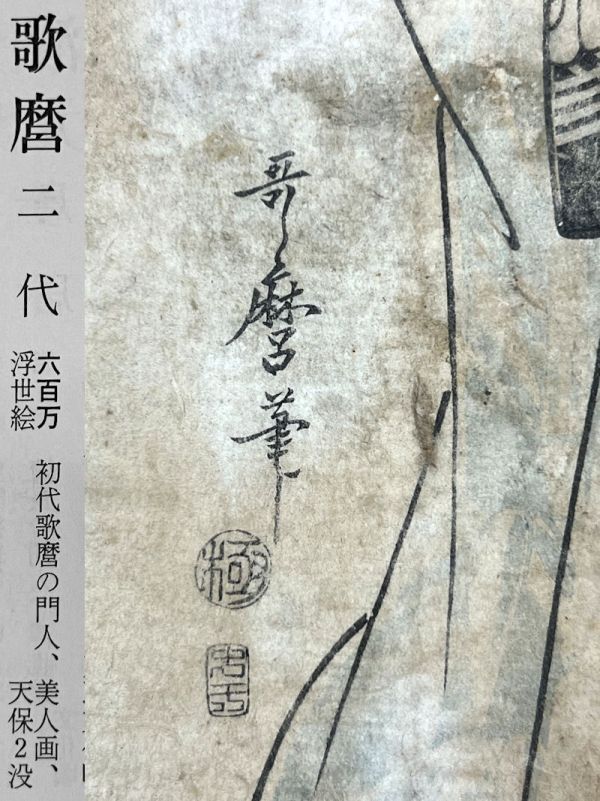 歌麿二代
六百万
浮世絵
初代歌麿の門人、美人画、
天保2没
哥麿筆
極